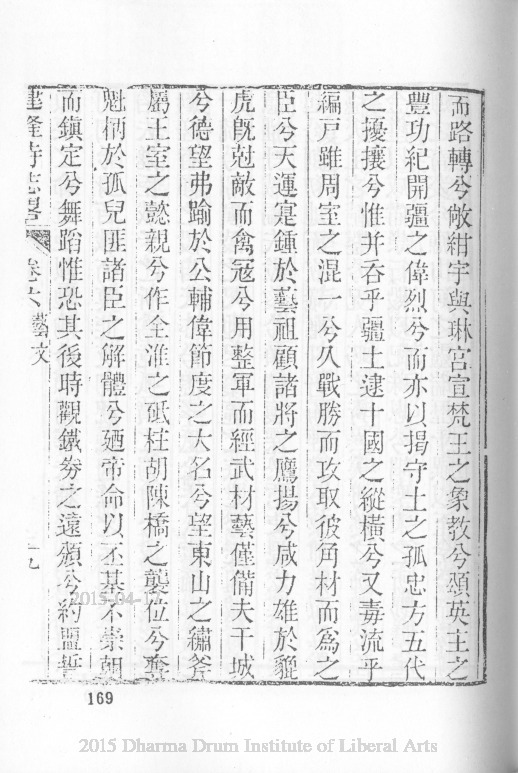 而路轉兮敞紺宇與琳宮宣梵王之象教兮頌英主之
豐功紀開疆之偉烈兮而亦以揭守土之孤忠方五代
之擾攘兮惟并吞乎疆土逮十國之縱橫兮又毒流乎
編戶雖周室之混一兮久戰勝而攻取彼角材而為之
臣兮天運寔鍾於藝祖顧諸將之鷹揚兮咸力雄於貔
虎旣尅敵而禽寇兮用整軍而經武材藝僅備夫干城
兮德望弗踰於公輔偉節度之大名兮望東山之繡斧
屬王室之懿親兮作全淮之砥柱胡陳橋之襲位兮奪
魁柄於孤兒匪諸臣之解體兮廼帝命以丕基不崇朝
而鎮定兮舞蹈惟恐其後時觀鐵劵之遠頒兮約盟誓
建隆寺志畧 卷六 藝文 十九
169
2015-04-17
2015 Dharma Drum Institute of Liberal Arts